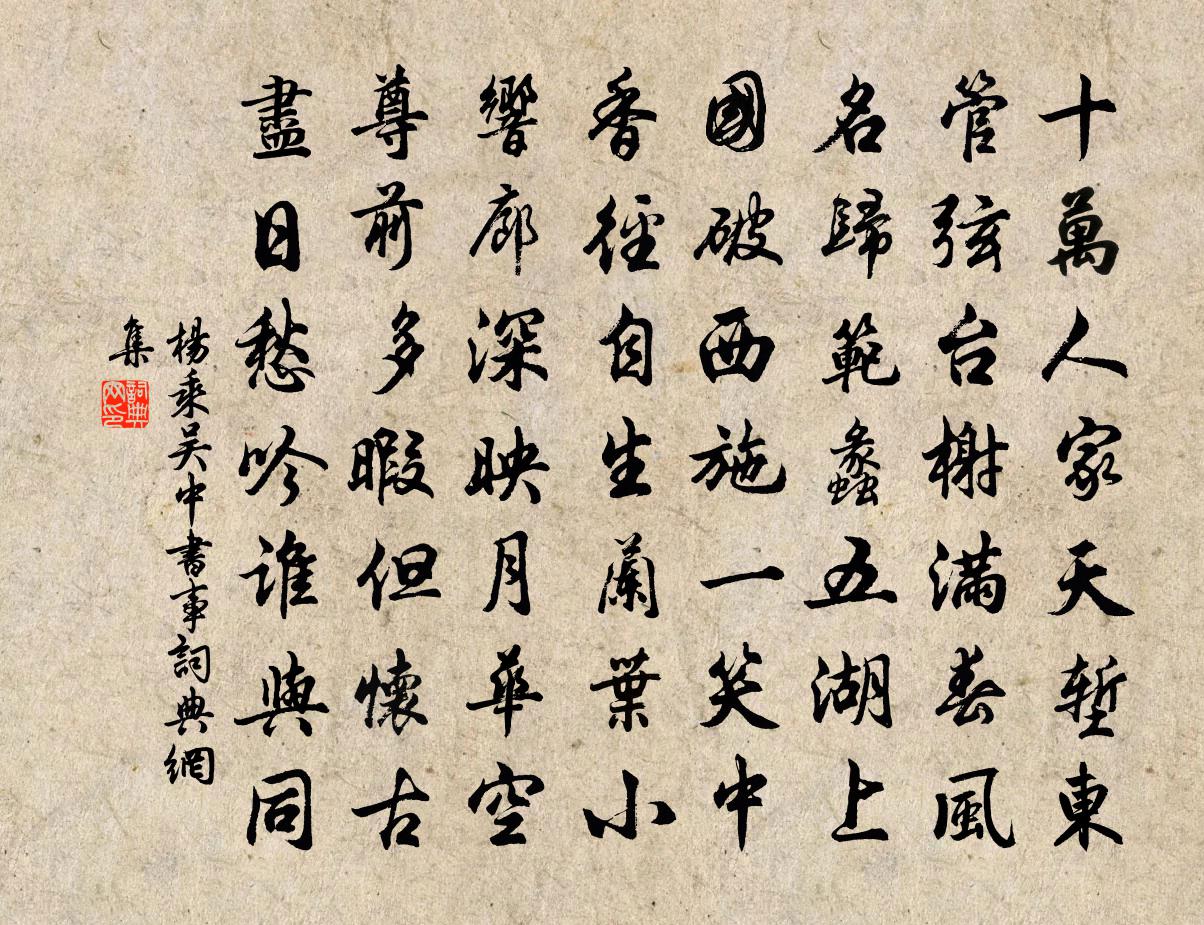 十萬人家天塹東
管弦台榭滿春風
名歸範蠡五湖上
國破西施一笑中
香徑自生蘭葉小
響廊深映月華空
尊前多暇但懷古
盡日愁吟誰與同
楊乘吴中書事詞典網
集
詞典
网印